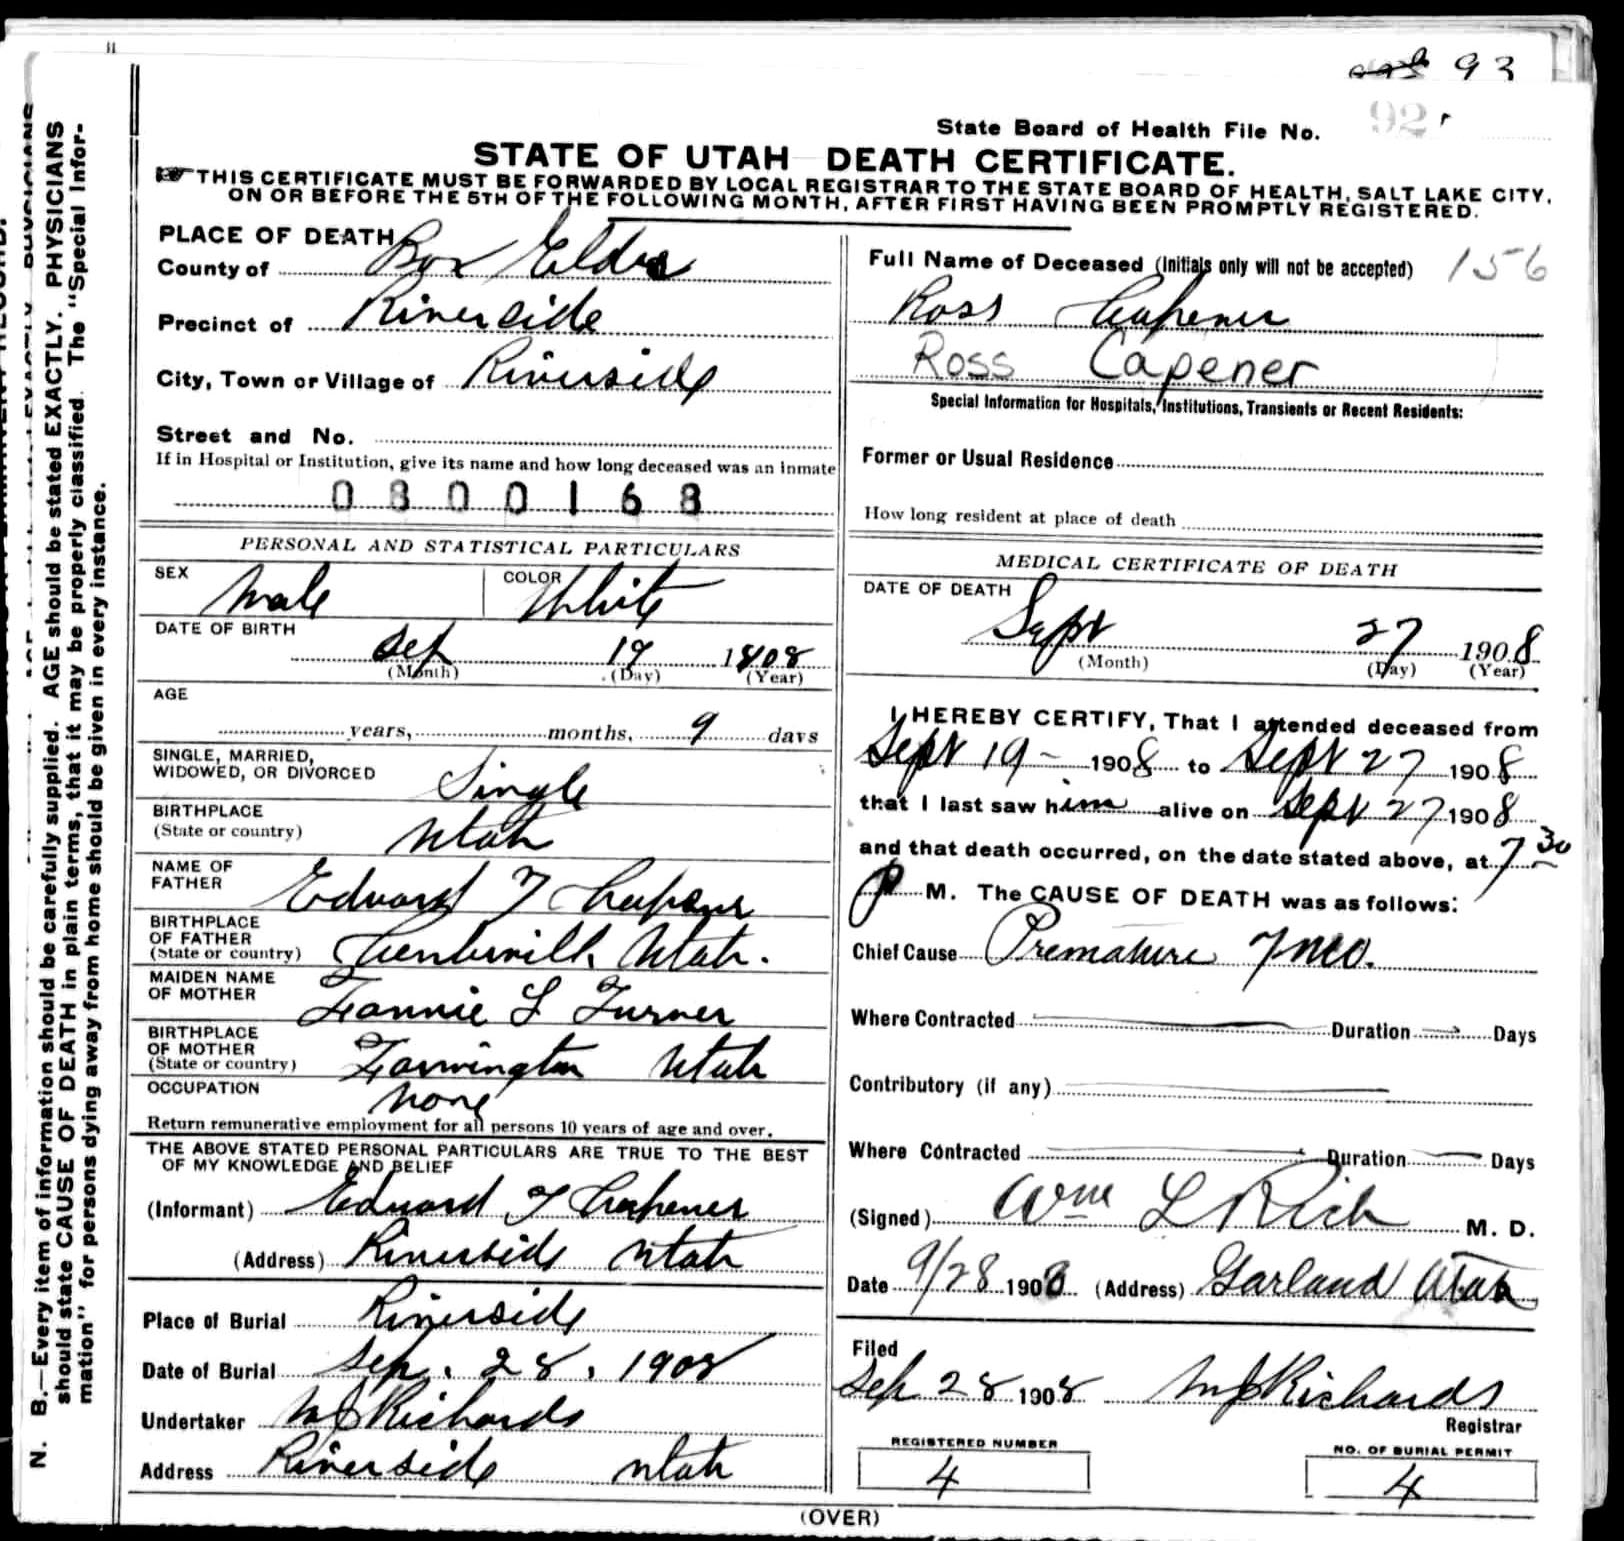 93
State Board of Health File No. 92
STATE OF UTAH DEATH CERTIFICATE.
THIS CERTIFICATE MUST BE FORWARDED BY LOCAL REGISTRAR TO THE STATE BOARD OF HEALTH, SALT LAKE CITY,
ON OR BEFORE THE 5TH OF THE FOLLOWING MONTH, AFTER FIRST HAVING BEEN PROMPTLY REGISTERED.
PLACE OF DEATH
County of Box Elder
Precinct of Riverside
City, Town or Village of Riverside
Street and No.
If in Hospital or Institution, give its name and how long deceased was an inmate
0800168
PERSONAL AND STATISTICAL PARTICULARS
SEX Male COLOR White
DATE OF BIRTH
Sep 19 1908
(Month) (Day) (Year)
AGE
years, months, 9 days
SINGLE, MARRIED,
WIDOWED, OR DIVORCED Single
BIRTHPLACE
(State or country) Utah
NAME OF
FATHER Edward T Capener
BIRTHPLACE
OF FATHER
(State or country) Centerville Utah.
MAIDEN NAME
OF MOTHER Fannie L Turner
BIRTHPLACE
OF MOTHER
(State or country) Farmington Utah
OCCUPATION None
Return remunerative employment for all persons 10 years of age and over.
THE ABOVE STATED PERSONAL PARTICULARS ARE TRUE TO THE BEST
OF MY KNOWLEDGE AND BELIEF
(Informant) Edward T Capener
(Address) Riverside Utah
Place of Burial Riverside
Date of Burial Sep. 28, 1908
Undertaker M J Richards
Address Riverside Utah
Full Name of Deceased (Initials only will not be accepted) 156
Ross Capener
Ross Capener
Special Information for Hospitals, Institutions, Transients or Recent Residents:
Former or Usual Residence
How long resident at place of death
MEDICAL CERTIFICATE OF DEATH
DATE OF DEATH
Sept 27 1908
(Month) (Day) (Year)
I HEREBY CERTIFY, That I attended deceased from
Sept 19 - 1908 to Sept 27 1908
that I last saw him alive on Sept 27 1908
and that death occurred, on the date stated above, at 7 30
P M. The CAUSE OF DEATH was as follows:
Chief Cause Premature 7 mo.
Where Contracted Duration Days
Contributory (if any)
Where Contracted Duration Days
(Signed) Wm L Rich M. D.
Date 9/28 1908 (Address) Garland Utah
Filed
Sep 28 1908 M J Richards
Registrar
REGISTERED NUMBER
4
NO. OF BURIAL PERMIT
4
(OVER)
N. B.—Every item of information should be carefully supplied. AGE should be stated EXACTLY. PHYSICIANS
should state CAUSE OF DEATH in plain terms, that it may be properly classified. The "Special Infor-
mation" for persons dying away from home should be given in every instance.